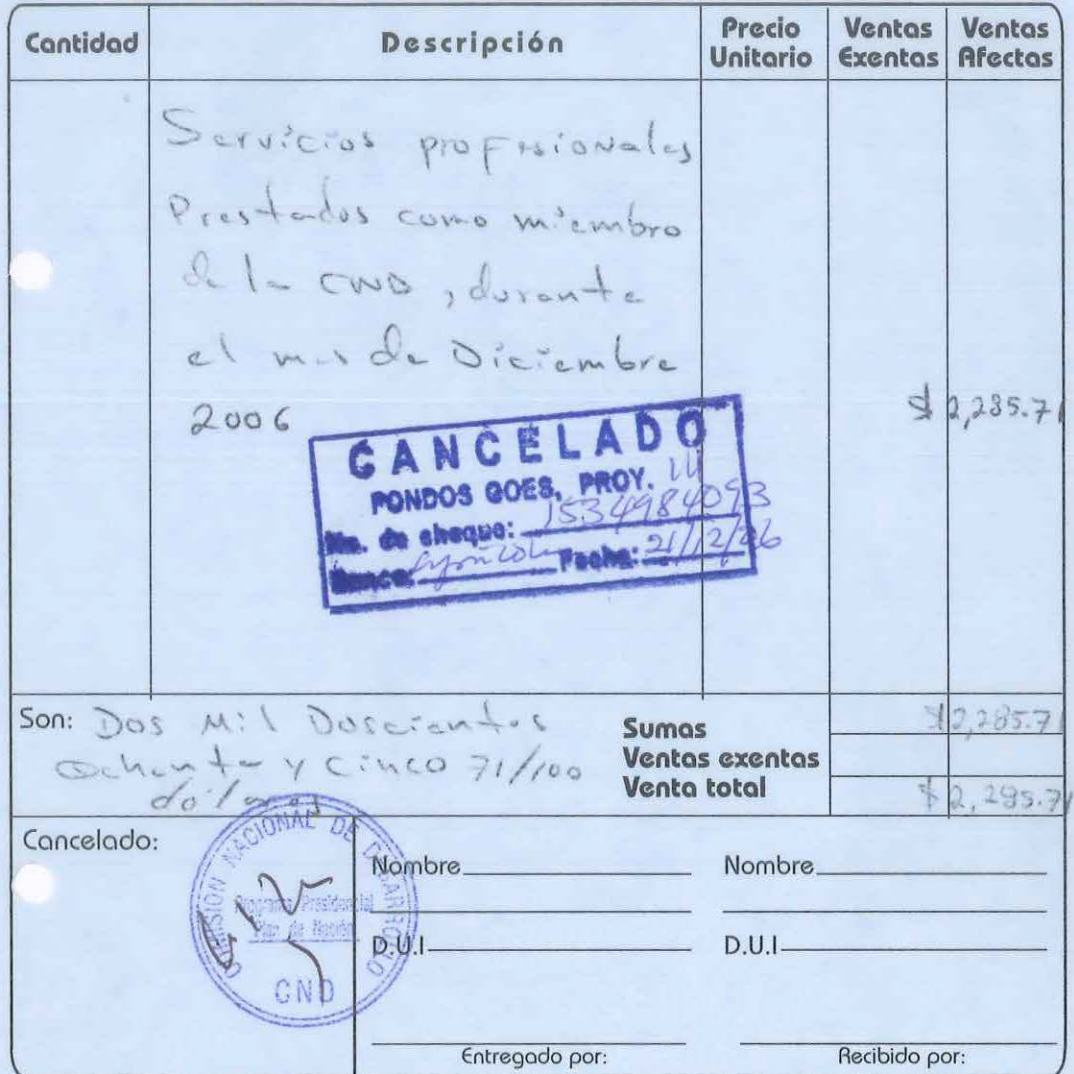 Cantidad Descripción Precio Unitario Ventas Exentas Ventas Afectas
Servicios profesionales
Prestados como miembro
de la CND, durante
el mes de Diciembre
2006 $ 2,285.71
CANCELADO
FONDOS GOES, PROY.
No. de cheque: 1534984093
Banco: Agrícola Fecha: 21/12/06
Son: Dos Mil Doscientos
Ochenta y Cinco 71/100
dólares
Sumas $2,285.71
Ventas exentas
Venta total $2,285.71
Cancelado:
COMISION NACIONAL DE DESARROLLO
Programa Presidencial
Plan de Nación
CND
Nombre Nombre
D.U.I D.U.I
Entregado por: Recibido por: